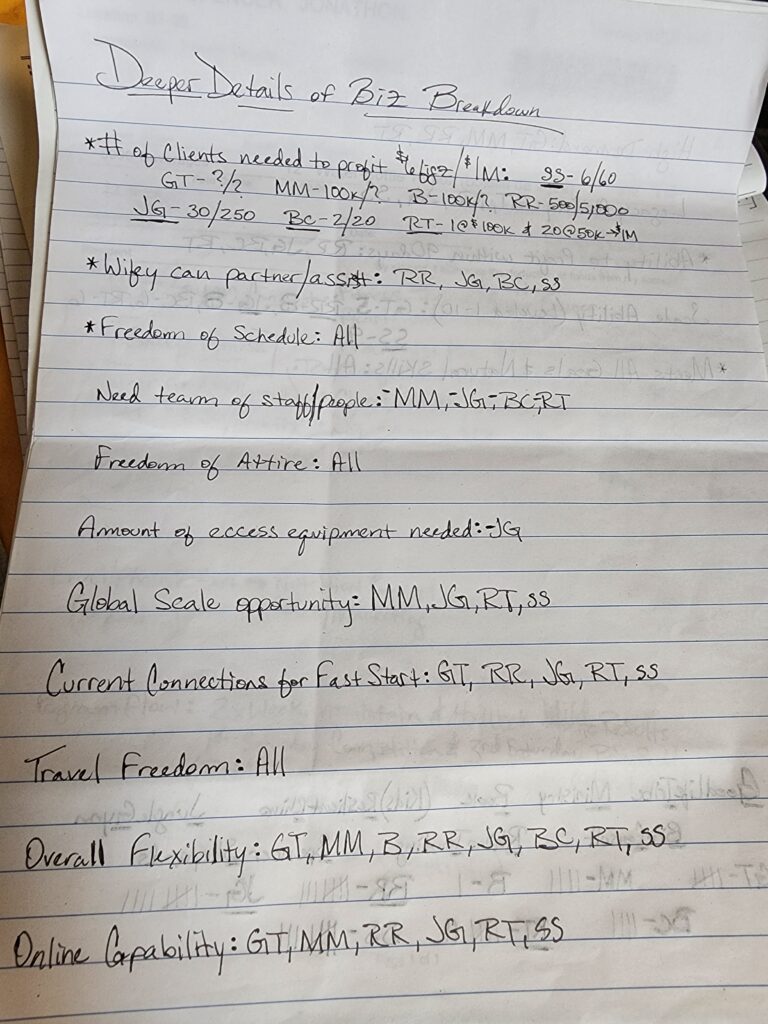 Deeper Details of Biz Breakdown
*# of Clients needed to profit $6figz/$1M: SS-6/60
GT-?/? MM-100K/? B-100K/? RR-500/5,000
JG-30/250 BC-2/20 RT-1@$100K & 20@50K→$1M
*Wifey can partner/assist: RR, JG, BC, SS
*Freedom of Schedule: All
Need team of staff/people: -MM, -JG, -BC, -RT
Freedom of Attire: All
Amount of eccess equipment needed: -JG
Global Scale opportunity: MM, JG, RT, SS
Current Connections for Fast Start: GT, RR, JG, RT, SS
Travel Freedom: All
Overall Flexibility: GT, MM, B, RR, JG, BC, RT, SS
Online Capability: GT, MM, RR, JG, RT, SS